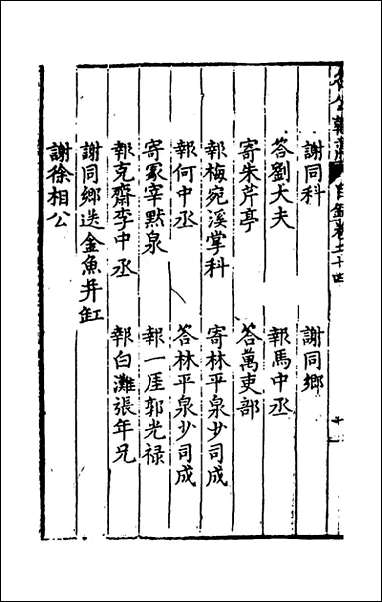 謝同科 謝同鄉
答劉大夫 報馬中丞
寄朱芹亭 答萬吏部
報梅宛溪掌科 寄林平泉少司成
報何中丞 答林平泉少司成
寄冢宰默泉 報一厓郭光禄
報克齋李中丞 報白灘張年兄
謝同鄉送金魚并缸
謝徐相公